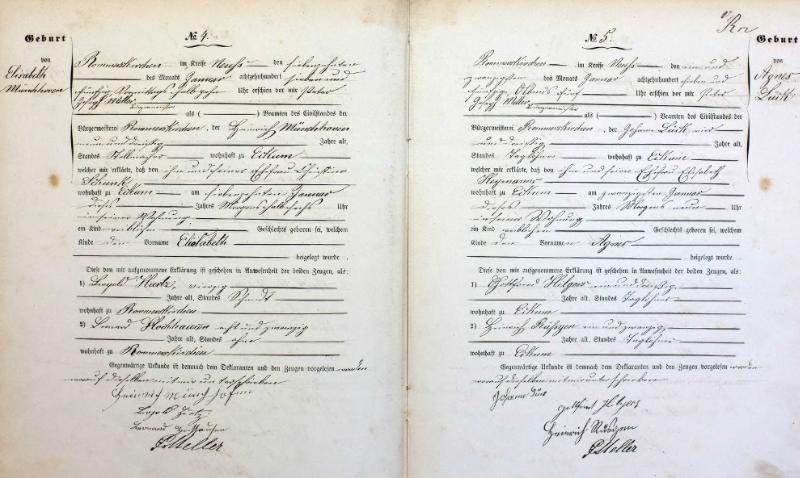 Geburt
№ 4.
von
Elisabeth
Münchhoven
Rommerskirchen im Kreise Neuss den siebenzehnten
des Monats Januar achtzehnhundert sieben und
fünfzig Uhr erschien vor mir Peter
Joseph Möller Bürgermeister
als ( ) Beamten des Civilstandes der
Bürgermeisterei Rommerskirchen, der Heinrich Münchhoven
neun und dreißig Jahre alt,
Standes wohnhaft zu Eckum
welcher mir erklärte, daß von ihm und seiner Ehefrau Christina
Schunk
wohnhaft zu Eckum am siebenzehnten Januar
dieses Jahres Morgens Uhr
in seiner Wohnung
ein Kind weiblichen Geschlechts geboren sei, welchem
Kinde den Vornamen Elisabeth
beigelegt wurde
Diese von mir aufgenommene Erklärung ist geschehen in Anwesenheit der beiden Zeugen, als:
1) Leopold vierzig
Jahre alt, Standes
wohnhaft zu Rommerskirchen
2) Bernard acht und zwanzig
Jahre alt, Standes ohne
wohnhaft zu Rommerskirchen
Gegenwärtige Urkunde ist demnach dem Deklaranten und den Zeugen vorgelesen worden
worauf dieselben mit mir unterschrieben
Heinrich
Leopold
Bernard
P Möller
№ 5.
Geburt
von
Agnes
Lück
Rommerskirchen im Kreise Neuss den ein und
zwanzigsten des Monats Januar achtzehnhundert sieben und
fünfzig Abends fünf Uhr erschien vor mir Peter
Joseph Möller Bürgermeister
als ( ) Beamten des Civilstandes der
Bürgermeisterei Rommerskirchen, der Johann Lück
und dreißig Jahre alt,
Standes Taglöhner wohnhaft zu Eckum
welcher mir erklärte, daß von ihm und seiner Ehefrau Elisabeth
wohnhaft zu Eckum am zwanzigsten Januar
dieses Jahres Morgens neun Uhr
in seiner Wohnung
ein Kind weiblichen Geschlechts geboren sei, welchem
Kinde den Vornamen Agnes
beigelegt wurde
Diese von mir aufgenommene Erklärung ist geschehen in Anwesenheit der beiden Zeugen, als:
1) Gottfried Hilgers
Jahre alt, Standes Taglöhner
wohnhaft zu Eckum
2) Heinrich ein und zwanzig
Jahre alt, Standes Taglöhner
wohnhaft zu Eckum
Gegenwärtige Urkunde ist demnach dem Deklaranten und den Zeugen vorgelesen worden
worauf dieselben mit mir unterschrieben
Johann Lück
Gottfried Hilgers
Heinrich
P Möller